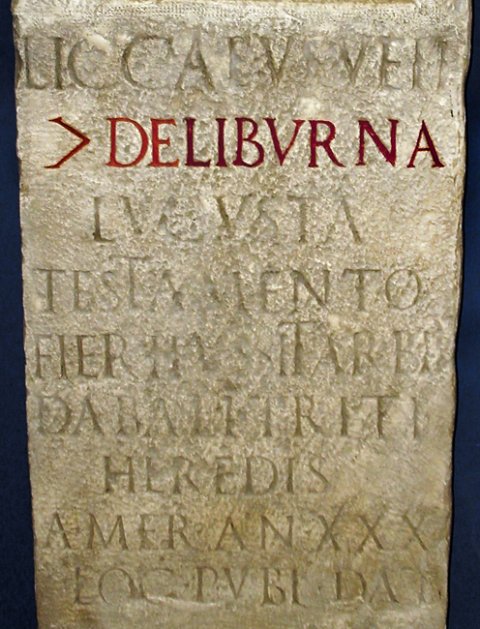 LICCAEVS VELI
> DE LIBVRNA
LVCVSTA
TESTAMENTO
FIERI IVSSIT ARBI
HEREDIS
A MER AN XXX
LOC PVBL DAT